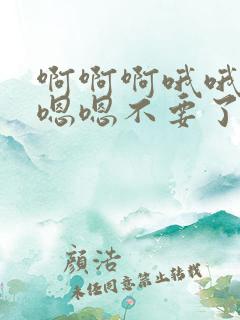 啊啊啊哦哦
嗯嗯不要了
顏浩
未经同意禁止转载